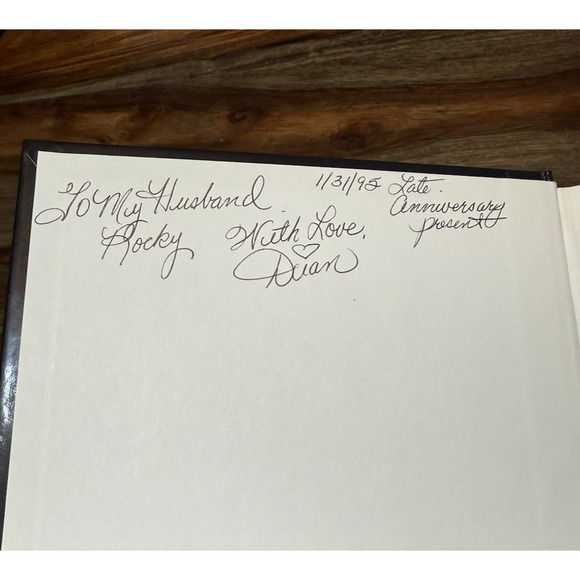 To My Husband
Rocky
With Love,
♡
Duan
1/31/95 Late
Anniversary
present